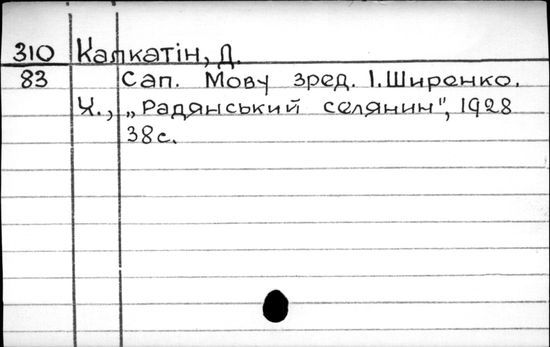 310 Калкатін, Д.
83 Сап. Мову зред. І. Ширенко.
Х., „Радянський селянин", 1928
38с.